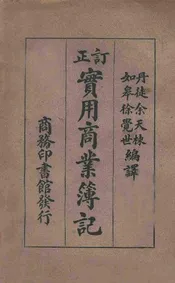 訂正
丹徒余天棟
如皋徐覺世
編譯
實用商業簿記
商務印書館發行